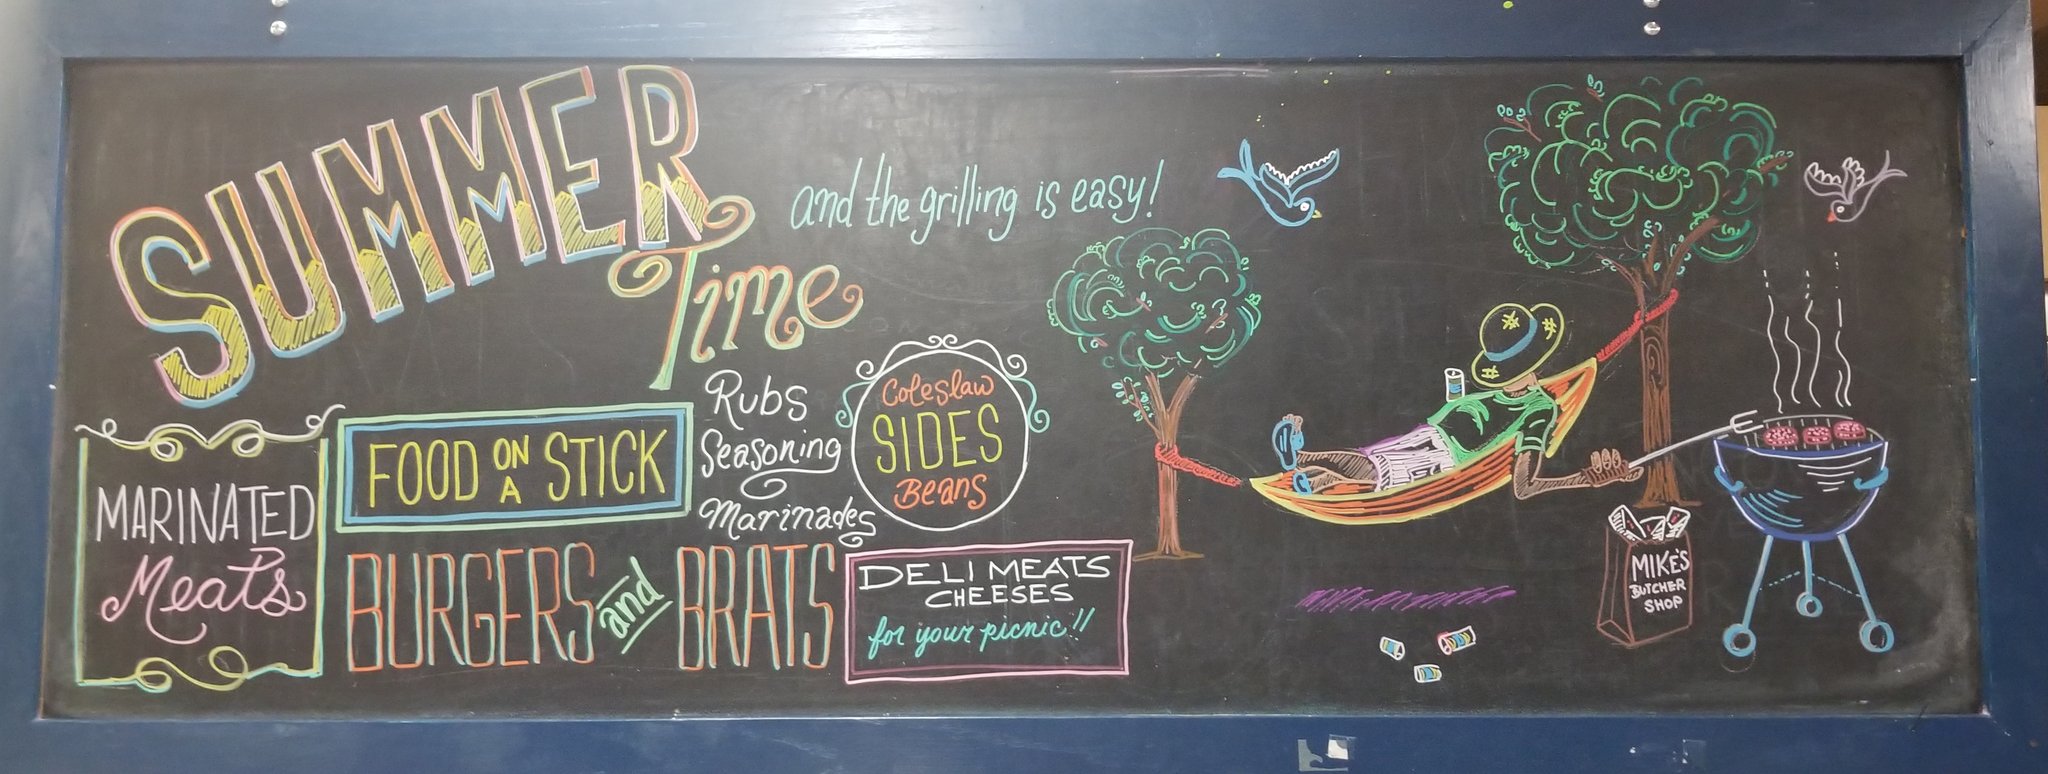 SUMMER
Time
and the grilling is easy!
MARINATED
Meats
FOOD ON A STICK
Rubs
Seasoning
Marinades
Coleslaw
SIDES
Beans
BURGERS and BRATS
DELI MEATS
CHEESES
for your picnic!!
MIKE'S
BUTCHER
SHOP